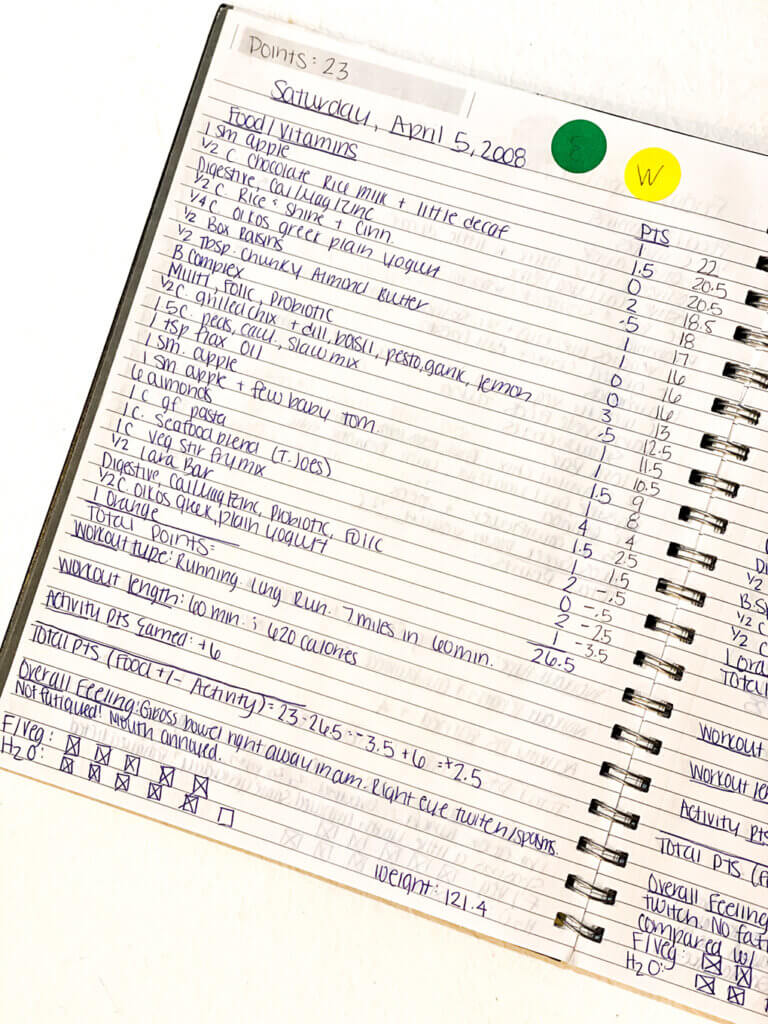 Points: 23
Saturday, April 5, 2008
W
Food/Vitamins PTS
1 sm apple 1 22
1/2 C chocolate Rice milk + little decaf 1.5 20.5
Digestive, Cal/Mag/Zinc 0 20.5
1/2 C. Rice & Shine + Cinn. 2 18.5
1/4 C. Oikos greek plain yogurt .5 18
1/2 Box Raisins 1 17
1/2 Tbsp. chunky Almond Butter 1 16
B complex 0 16
Multi, Folic, Probiotic 0 16
1/2 C. grilled chix + dill, basil, pesto, garlic, lemon 3 13
1.5 C. peas, caul., slaw mix .5 12.5
1 tsp flax oil 1 11.5
1 sm. apple 1 10.5
1 sm apple + few baby tom. 1.5 9
6 almonds 1 8
1 C gf pasta 4 4
1 C. Seafood blend (T. Joes) 1.5 2.5
1 C veg stir fry mix 1 1.5
1/2 Lara Bar 2 -.5
Digestive, Cal/Mag/Zinc, probiotic, Folic 0 -.5
1/2 C Oikos greek, plain yogurt 2 -2.5
1 orange 1 -3.5
Total Points: 26.5
Workout type: Running. Long Run. 7 miles in 60 min.
Workout length: 60 min. ; 620 calories
Activity Pts Earned: +6
Total Pts (Food +/- Activity) = 23 - 26.5 = -3.5 + 6 = +2.5
Overall Feeling: Gross bowel right away in am. Right eye twitch/spasms.
Not fatigued! Mouth annoyed.
F/veg:
H2O:
weight: 121.4
1/2
B.Sp
1/2 C
1/2 C
Total
Workout
Workout le
Activity pts
Total Pts (F
Overall Feeling
twitch. No fat
compared w/
F/veg:
H2O: